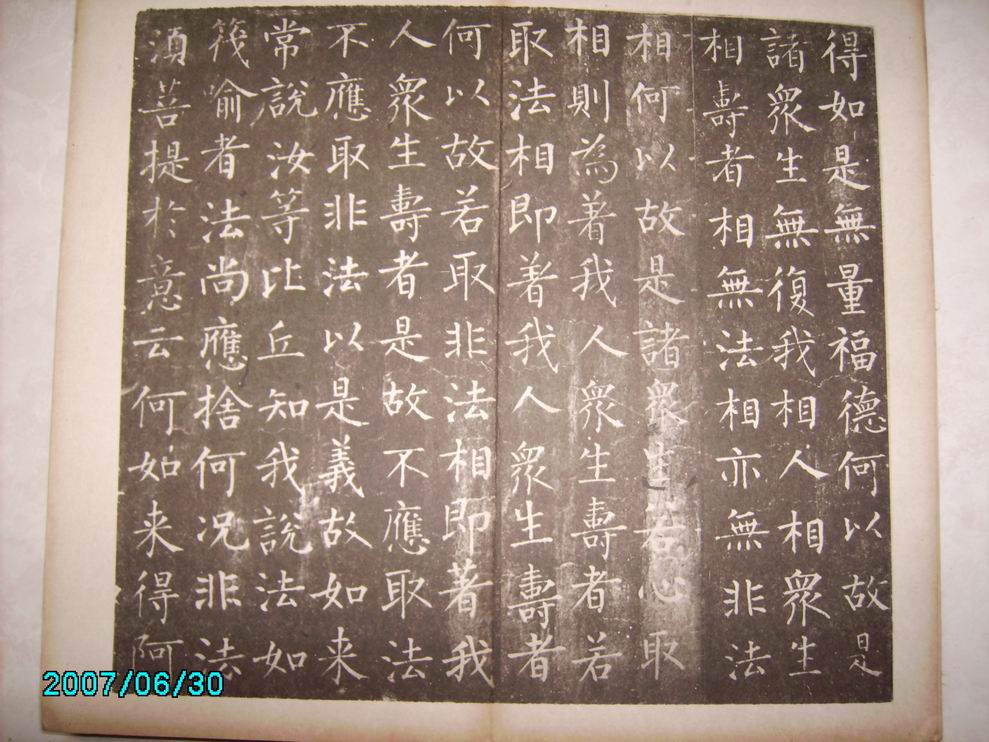 得如是無量福德何以故是
諸衆生無復我相人相衆生
相壽者相無法相亦無非法
相何以故是諸衆生若心取
相則為著我人衆生壽者若
取法相即著我人衆生壽者
何以故若取非法相即著我
人衆生壽者是故不應取法
不應取非法以是義故如来
常說汝等比丘知我說法如
筏喻者法尚應捨何況非法
須菩提於意云何如来得阿
2007/06/30